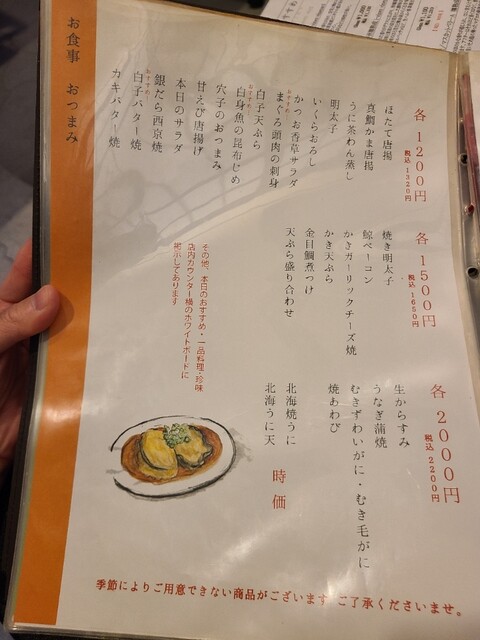 お食事 おつまみ
各 1200円
税込 1320円
ほたて唐揚
真鯛かま唐揚
うに茶わん蒸し
明太子
いくらおろし
おすすめ
かつお香草サラダ
まぐろ頭肉の刺身
おすすめ
白子天ぷら
白身魚の昆布じめ
穴子のおつまみ
甘えび唐揚げ
本日のサラダ
銀だら西京焼
おすすめ
白子バター焼
カキバター焼
各 1500円
税込 1650円
焼き明太子
鯨ベーコン
かきガーリックチーズ焼
かき天ぷら
金目鯛煮つけ
天ぷら盛り合わせ
その他、本日のおすすめ・一品料理・珍味
店内カウンター横のホワイトボードに
掲示してあります
各 2000円
税込 2200円
生からすみ
うなぎ蒲焼
むきずわいがに・むき毛がに
焼あわび
北海焼うに
北海うに天
時価
季節によりご用意できない商品がございます ご了承くださいませ。